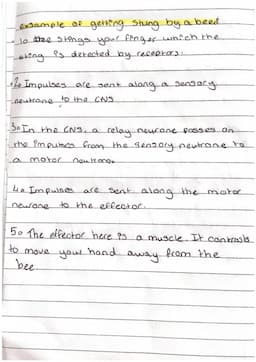 example of getting stung by a beed
1o Bee stings your finger which the
sting is detected by receptors.
2o Impulses are sent along a sensory
neutrone to the CNS
3o In the CNS, a relay neurone passes on
the impulses from the sensory neutrone to
a motor neutrone.
4o Impulses are sent along the motor
neurone to the effector.
5o The effector here is a muscle. It contracts
to move your hand away from the
bee